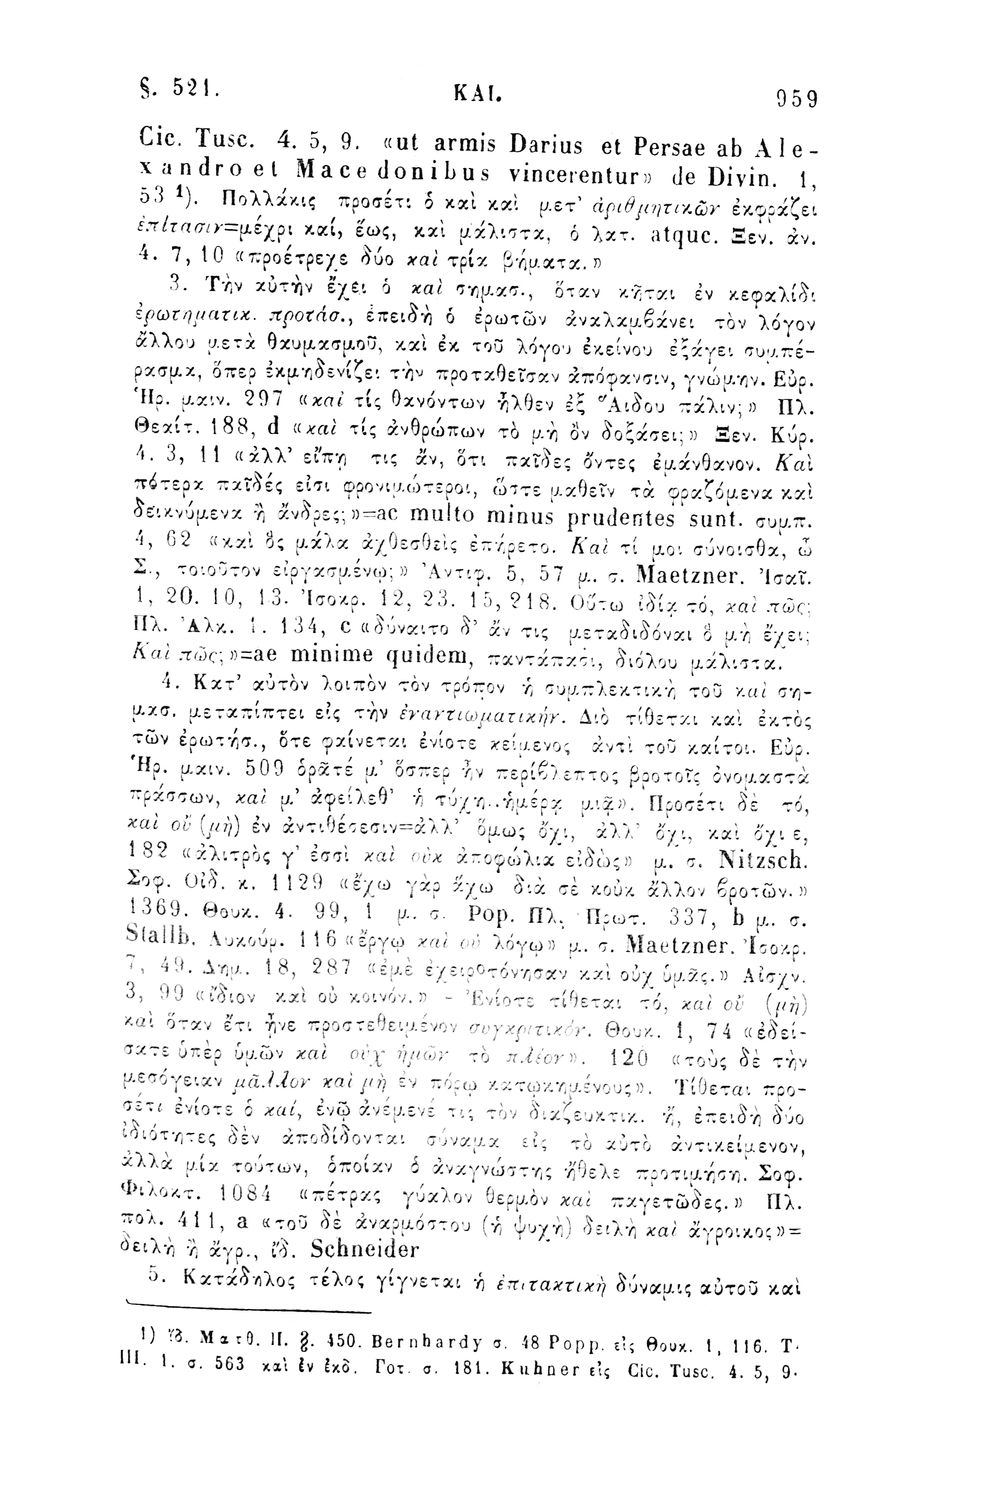 §. 521. ΚΑΙ. 959
Cic. Tusc. 4. 5, 9. «ut armis Darius et Persae ab Ale-
xandro et Macedonibus vincerentur» de Divin. 1,
53 ¹). Πολλάκις προσέτι ὁ καὶ καὶ μετ’ ἀριθμητικῶν ἐκφράζει
ἐπίτασιν=μέχρι καί, ἕως, καὶ μάλιστα, ὁ λατ. atque. Ξεν. ἀν.
4. 7, 10 «προέτρεχε δύο καὶ τρία βήματα.»
3. Τὴν αὐτὴν ἔχει ὁ καὶ σημασ., ὅταν κῆται ἐν κεφαλίδι
ἐρωτηματικ. προτάσ., ἐπειδὴ ὁ ἐρωτῶν ἀναλαμβάνει τὸν λόγον
ἄλλου μετὰ θαυμασμοῦ, καὶ ἐκ τοῦ λόγου ἐκείνου ἐξάγει συμπέ-
ρασμα, ὅπερ ἐκμηδενίζει τὴν προταθεῖσαν ἀπόφανσιν, γνώμην. Εὐρ.
Ἡρ. μαιν. 297 «καὶ τίς θανόντων ἦλθεν ἐξ Ἅιδου πάλιν;» Πλ.
Θεαίτ. 188, d «καὶ τίς ἀνθρώπων τὸ μὴ ὂν δοξάσει;» Ξεν. Κύρ.
4. 3, 11 «ἀλλ’ εἴπῃ τις ἄν, ὅτι παῖδες ὄντες ἐμάνθανον. Καὶ
πότερα παῖδές εἰσι φρονιμώτεροι, ὥστε μαθεῖν τὰ φραζόμενα καὶ
δεικνύμενα ἢ ἄνδρες;»=ac multo minus prudentes sunt. συμπ.
4, 62 «καὶ ὃς μάλα ἀχθεσθεὶς ἐπήρετο. Καὶ τί μοι σύνοισθα, ὦ
Σ., τοιοῦτον εἰργασμένῳ;» Ἀντιφ. 5, 57 μ. σ. Maetzner. Ἰσαῖ.
1, 20. 10, 13. Ἰσοκρ. 12, 23. 15, 218. Οὕτω ἰδίᾳ τό, καὶ πῶς;
Πλ. Ἀλκ. 1. 134, c «δύναιτο δ’ ἄν τις μεταδιδόναι ὃ μὴ ἔχει;
Καὶ πῶς;»=ae minime quidem, παντάπασι, διόλου μάλιστα.
4. Κατ’ αὐτὸν λοιπὸν τὸν τρόπον ἡ συμπλεκτικὴ τοῦ καὶ ση-
μασ. μεταπίπτει εἰς τὴν ἐναντιωματικήν. Διὸ τίθεται καὶ ἐκτὸς
τῶν ἐρωτήσ., ὅτε φαίνεται ἐνίοτε κείμενος ἀντὶ τοῦ καίτοι. Εὐρ.
Ἡρ. μαιν. 509 ὁρᾶτέ μ’ ὅσπερ ἦν περίβλεπτος βροτοῖς ὀνομαστὰ
πράσσων, καὶ μ’ ἀφείλεθ’ ἡ τύχη..ἡμέρᾳ μιᾷ». Προσέτι δὲ τό,
καὶ οὔ (μὴ) ἐν ἀντιθέσεσιν=ἀλλ’ ὅμως ὄχι, ἀλλ’ ὄχι, καὶ ὄχι ε,
182 «ἀλιτρὸς γ’ ἐσσὶ καὶ οὐκ ἀποφώλια εἰδὼς» μ. σ. Nitzsch.
Σοφ. Οἰδ. κ. 1129 «ἔχω γὰρ ἅχω διὰ σὲ κοὐκ ἄλλον βροτῶν.»
1369. Θουκ. 4. 99, 1 μ. σ. Pop. Πλ. Πρωτ. 337, b μ. σ.
Stallb. Λυκούρ. 116 «ἔργῳ καὶ οὐ λόγῳ» μ. σ. Maetzner. Ἰσοκρ.
7, 49. Δημ. 18, 287 «ἐμὲ ἐχειροτόνησαν καὶ οὐχ ὑμᾶς.» Αἰσχν.
3, 99 «ἴδιον καὶ οὐ κοινόν.» - Ἐνίοτε τίθεται τό, καὶ οὔ (μὴ)
καὶ ὅταν ἔτι ἦνε προστεθειμένον συγκριτικόν. Θουκ. 1, 74 «ἐδεί-
σατε ὑπὲρ ὑμῶν καὶ οὐχ ἡμῶν τὸ πλέον». 120 «τοὺς δὲ τὴν
μεσόγειαν μᾶλλον καὶ μὴ ἐν πόρῳ κατῳκημένους». Τίθεται προ-
σέτι ἐνίοτε ὁ καί, ἐνῷ ἀνέμενέ τις τὸν διαζευκτικ. ἤ, ἐπειδὴ δύο
ἰδιότητες δὲν ἀποδίδονται σύναμα εἰς τὸ αὐτὸ ἀντικείμενον,
ἀλλὰ μία τούτων, ὁποίαν ὁ ἀναγνώστης ἤθελε προτιμήση. Σοφ.
Φιλοκτ. 1084 «πέτρας γύαλον θερμὸν καὶ παγετῶδες.» Πλ.
πολ. 411, a «τοῦ δὲ ἀναρμόστου (ἡ ψυχὴ) δειλὴ καὶ ἄγροικος»=
δειλὴ ἢ ἄγρ., ἴδ. Schneider
5. Κατάδηλος τέλος γίγνεται ἡ ἐπιτακτικὴ δύναμις αὐτοῦ καὶ
1) Ἴδ. Ματθ. II. §. 450. Bernhardy σ. 48 Popp. εἰς Θουκ. 1, 116. Τ.
III. 1. σ. 563 καὶ ἐν ἐκδ. Γοτ. σ. 181. Kuhner εἰς Cic. Tusc. 4. 5, 9.